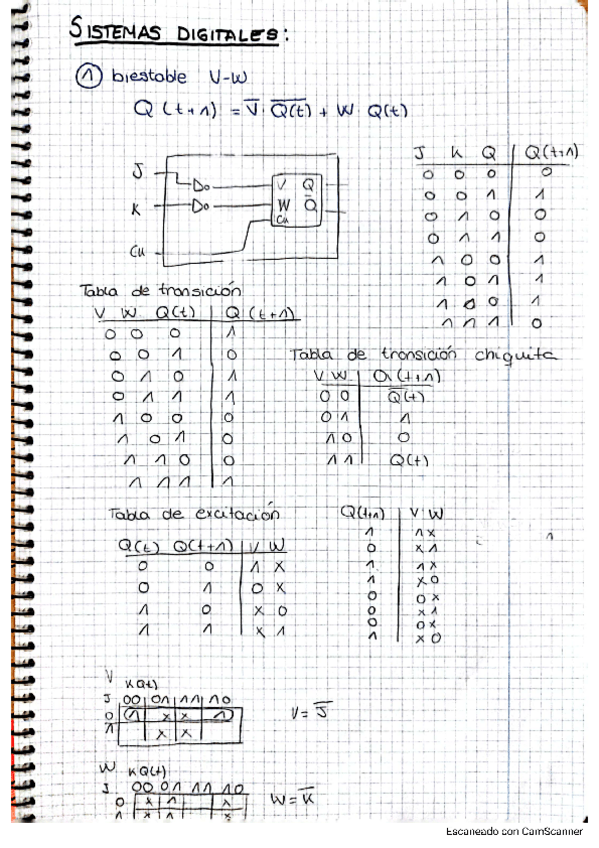 SISTEMAS DIGITALES:
① biestable V-W
Q (t+1) = V̅ · Q̅(̅t̅)̅ + W · Q(t)
J
K
Cu
V Q
W Q̅
Cu
J K Q | Q(t+1)
0 0 0 | 0
0 0 1 | 1
0 1 0 | 0
0 1 1 | 0
1 0 0 | 1
1 0 1 | 1
1 0 0 | 1
1 1 1 | 0
Tabla de transición
V W Q(t) | Q (t+1)
0 0 0 | 1
0 0 1 | 0
0 1 0 | 1
0 1 1 | 1
1 0 0 | 0
1 0 1 | 0
1 1 0 | 0
1 1 1 | 1
Tabla de transición chiquita
V W | Q (t+1)
0 0 | Q̅(t)
0 1 | 1
1 0 | 0
1 1 | Q(t)
Tabla de excitación
Q(t) Q(t+1) | V W
0 0 | 1 x
0 1 | 0 x
1 0 | x 0
1 1 | x 1
Q(t+1) | V W
1 | 1 x
0 | x 1
1 | 1 x
1 | x 0
0 | 0 x
0 | x 1
0 | 0 x
1 | x 0
V
K Q(t)
J 00 01 11 10
0 1 x x 1
1 x x
V = J̅
W
K Q(t)
J 00 01 11 10
0 x 1 x
1 x 1 x
W = K̅
Escaneado con CamScanner